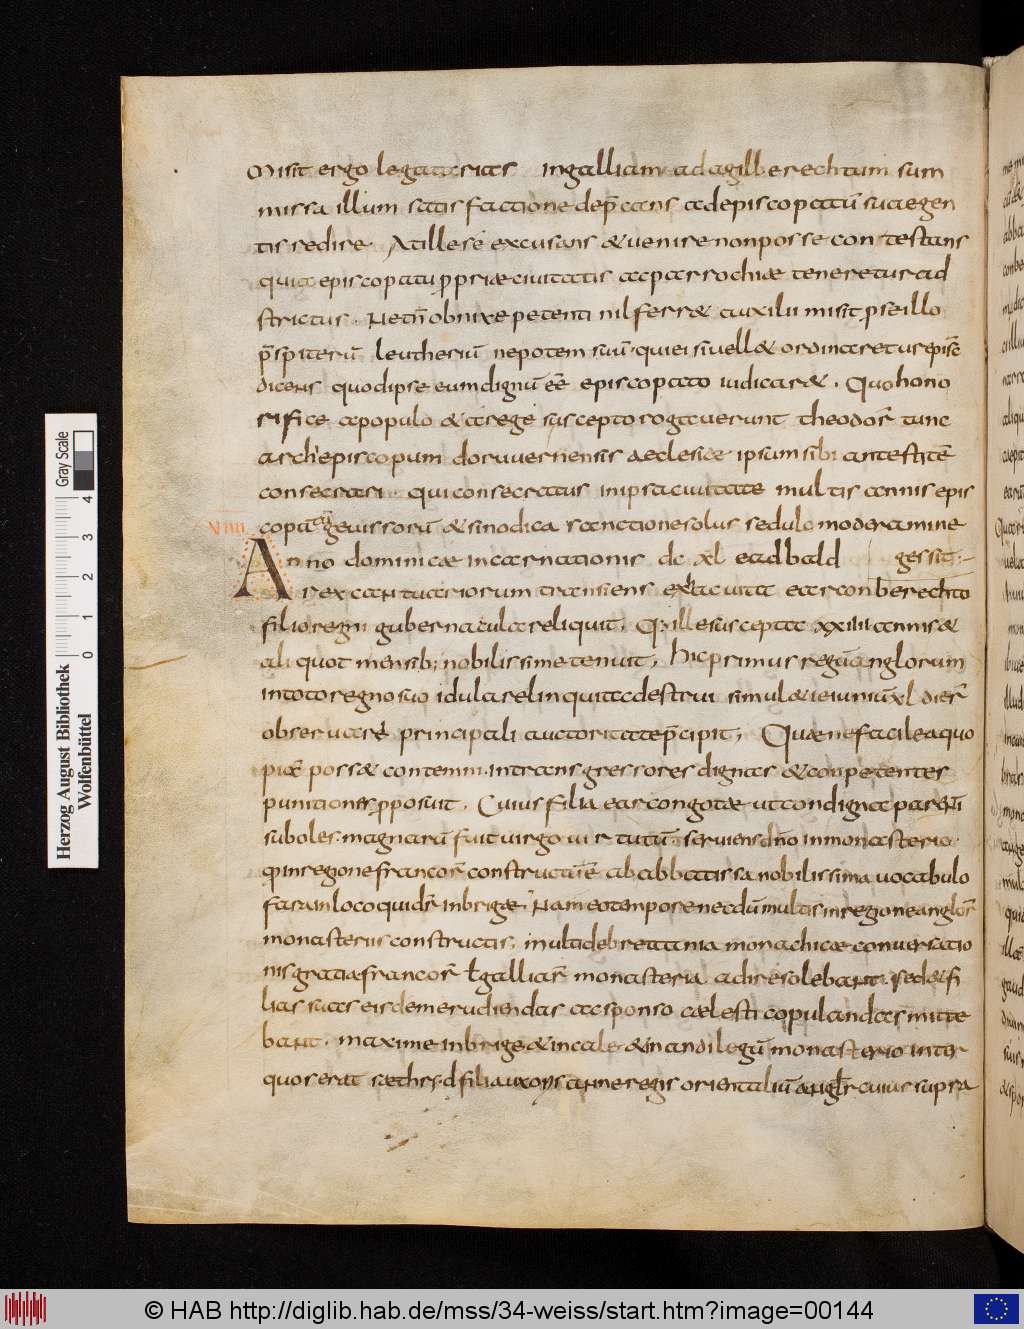 Misit ergo legatarios ingalliam adagilberechtum sum
missa illum satisfactione dep̄cans adepiscopatū suaegen
tis redire. Atille sé excusans &uenire nonposse contestans
quia episcopatu ꝓpriae ciuitatis acparrochiae teneretur ad
strictus. Netn̄ obnixe petenti nil ferr& auxilii misit ꝓseillo
p̄spiterū leutheriū nepotem suū. quiei siuell& ordinaretur ep̄isc
dicens quodipse eum dignū eē episcopato iudicar&. Quo hono
rifice apopulo &arege suscepto rogauerunt theodor̄ tunc
archiepiscopum doruuernensis aeclesiae ipsum sibi antestitē
consecrari. qui consecratus inipsa ciuitate multis annis epis
VIIII copatū geuissorū &sinodica sanctione solus sedulo moderamine
Anno dominicae incarnationis dc xl eadbald gessit.
rex cantuariorum transiens exhac uita earconberechto
filio regni gubernacula reliquit. Q ille suscepta xxiiii annis &
aliquot mensib; nobilissime tenuit. hic primus regū anglorum
intoto regno suo idula relinqui acdestrui simul &ieiuniū xl dier̄
obseruare principali auctoritate p̄cipit; Quae nefacile aquo
piā poss& contemni. intransgressores dignas &conpetentes
punitiones ꝓposuit. Cuius filia earcongotae ut condigna parenti
suboles. magnarū fuit uirgo uirtutū seruiens dn̄o inmonasterio.
q̄ inregione francor̄ constructū ē ab abbatissa nobilissima uocabulo
fara inloco quidr̄ inbrigae. Nam eo tempore necdū multis inregione anglor̄
monasteriis constructis. multi debrettania monachicae conuersatio
nis gratia francor̄ ł galliar̄ monasteria adire solebant. sed &fi
lias suas eisdem erudiendas acsponso caelesti copulandas mitte
bant. maxime inbrige &incale &inandilegū monasterio inter
quos erat saethrẏd filia uxoris anne regis orientaliū anglor̄ cuius supra
Gray Scale
0 1 2 3 4
Herzog August Bibliothek
Wolfenbüttel
© HAB http://diglib.hab.de/mss/34-weiss/start.htm?image=00144